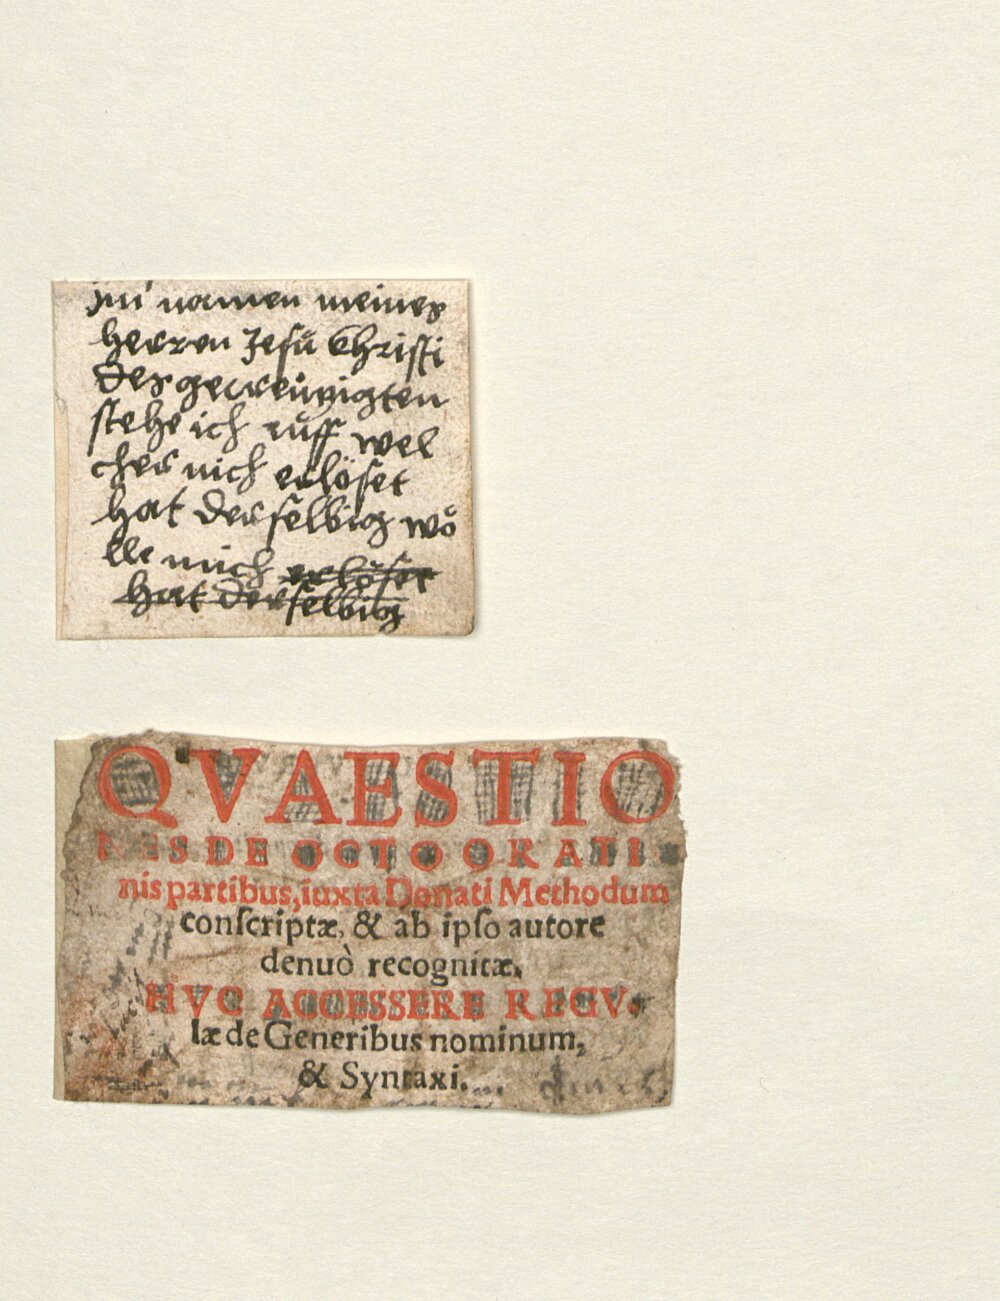 jm namen meines
herren Jesu Christi
des gecreutzigten
stehe ich auff wel
cher mich erlöset
hat derselbig wö
lle mich erlöset
hat derselbig
QVAESTIO
NES DE OCTO ORATI-
nis partibus, iuxta Donati Methodum
conscriptæ, & ab ipso autore
denuò recognitæ.
HVC ACCESSERE REGV-
læ de Generibus nominum,
& Syntaxi.